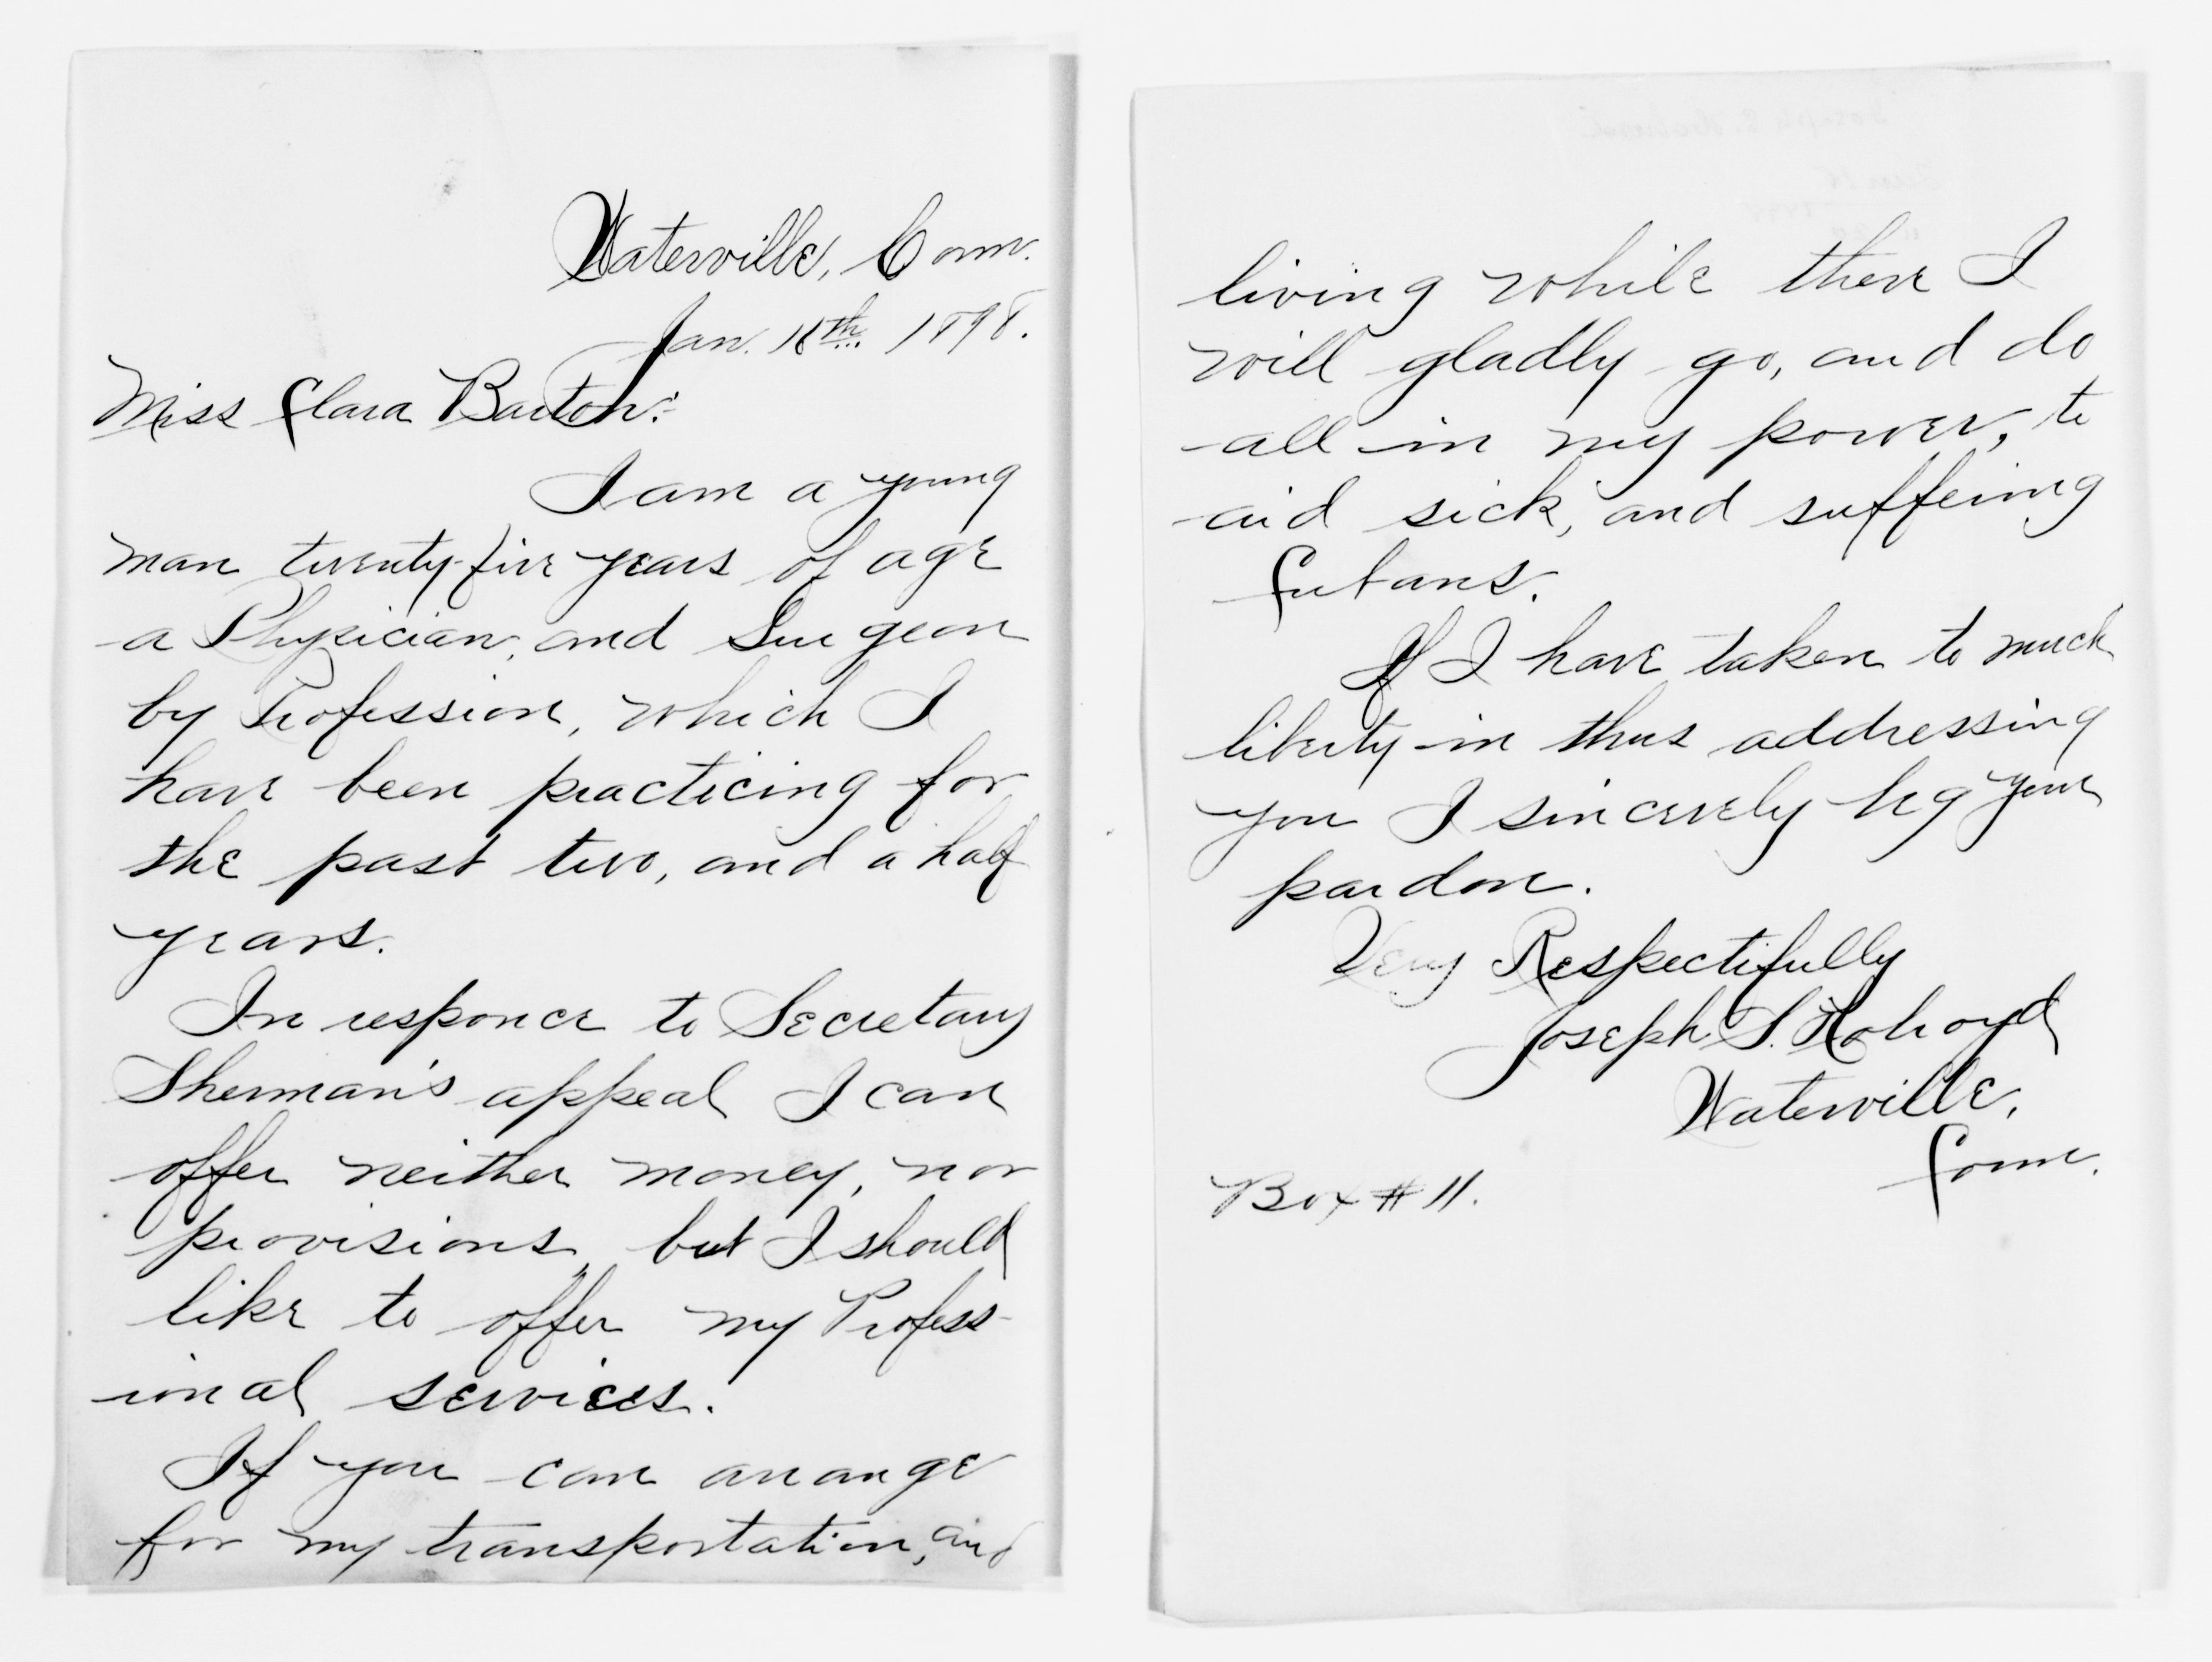 Waterville, Conn.
Jan. 18th 1898.
Miss Clara Barton:
I am a young
man twenty-five years of age
a Physician, and Surgeon
by Profession, which I
have been practicing for
the past two, and a half
years.
In responce to Secretary
Sherman's appeal I can
offer neither money, nor
provisions, but I should
like to offer my Profess-
ional services.
If you can arrange
for my transportation, and
living while there I
will gladly go, and do
all in my power, to
aid sick, and suffering
Cubans.
If I have taken to much
liberty in thus addressing
you I sincerely beg your
pardon.
Very Respectifully
Joseph S. Holroyd
Waterville,
Conn.
Box # 11.